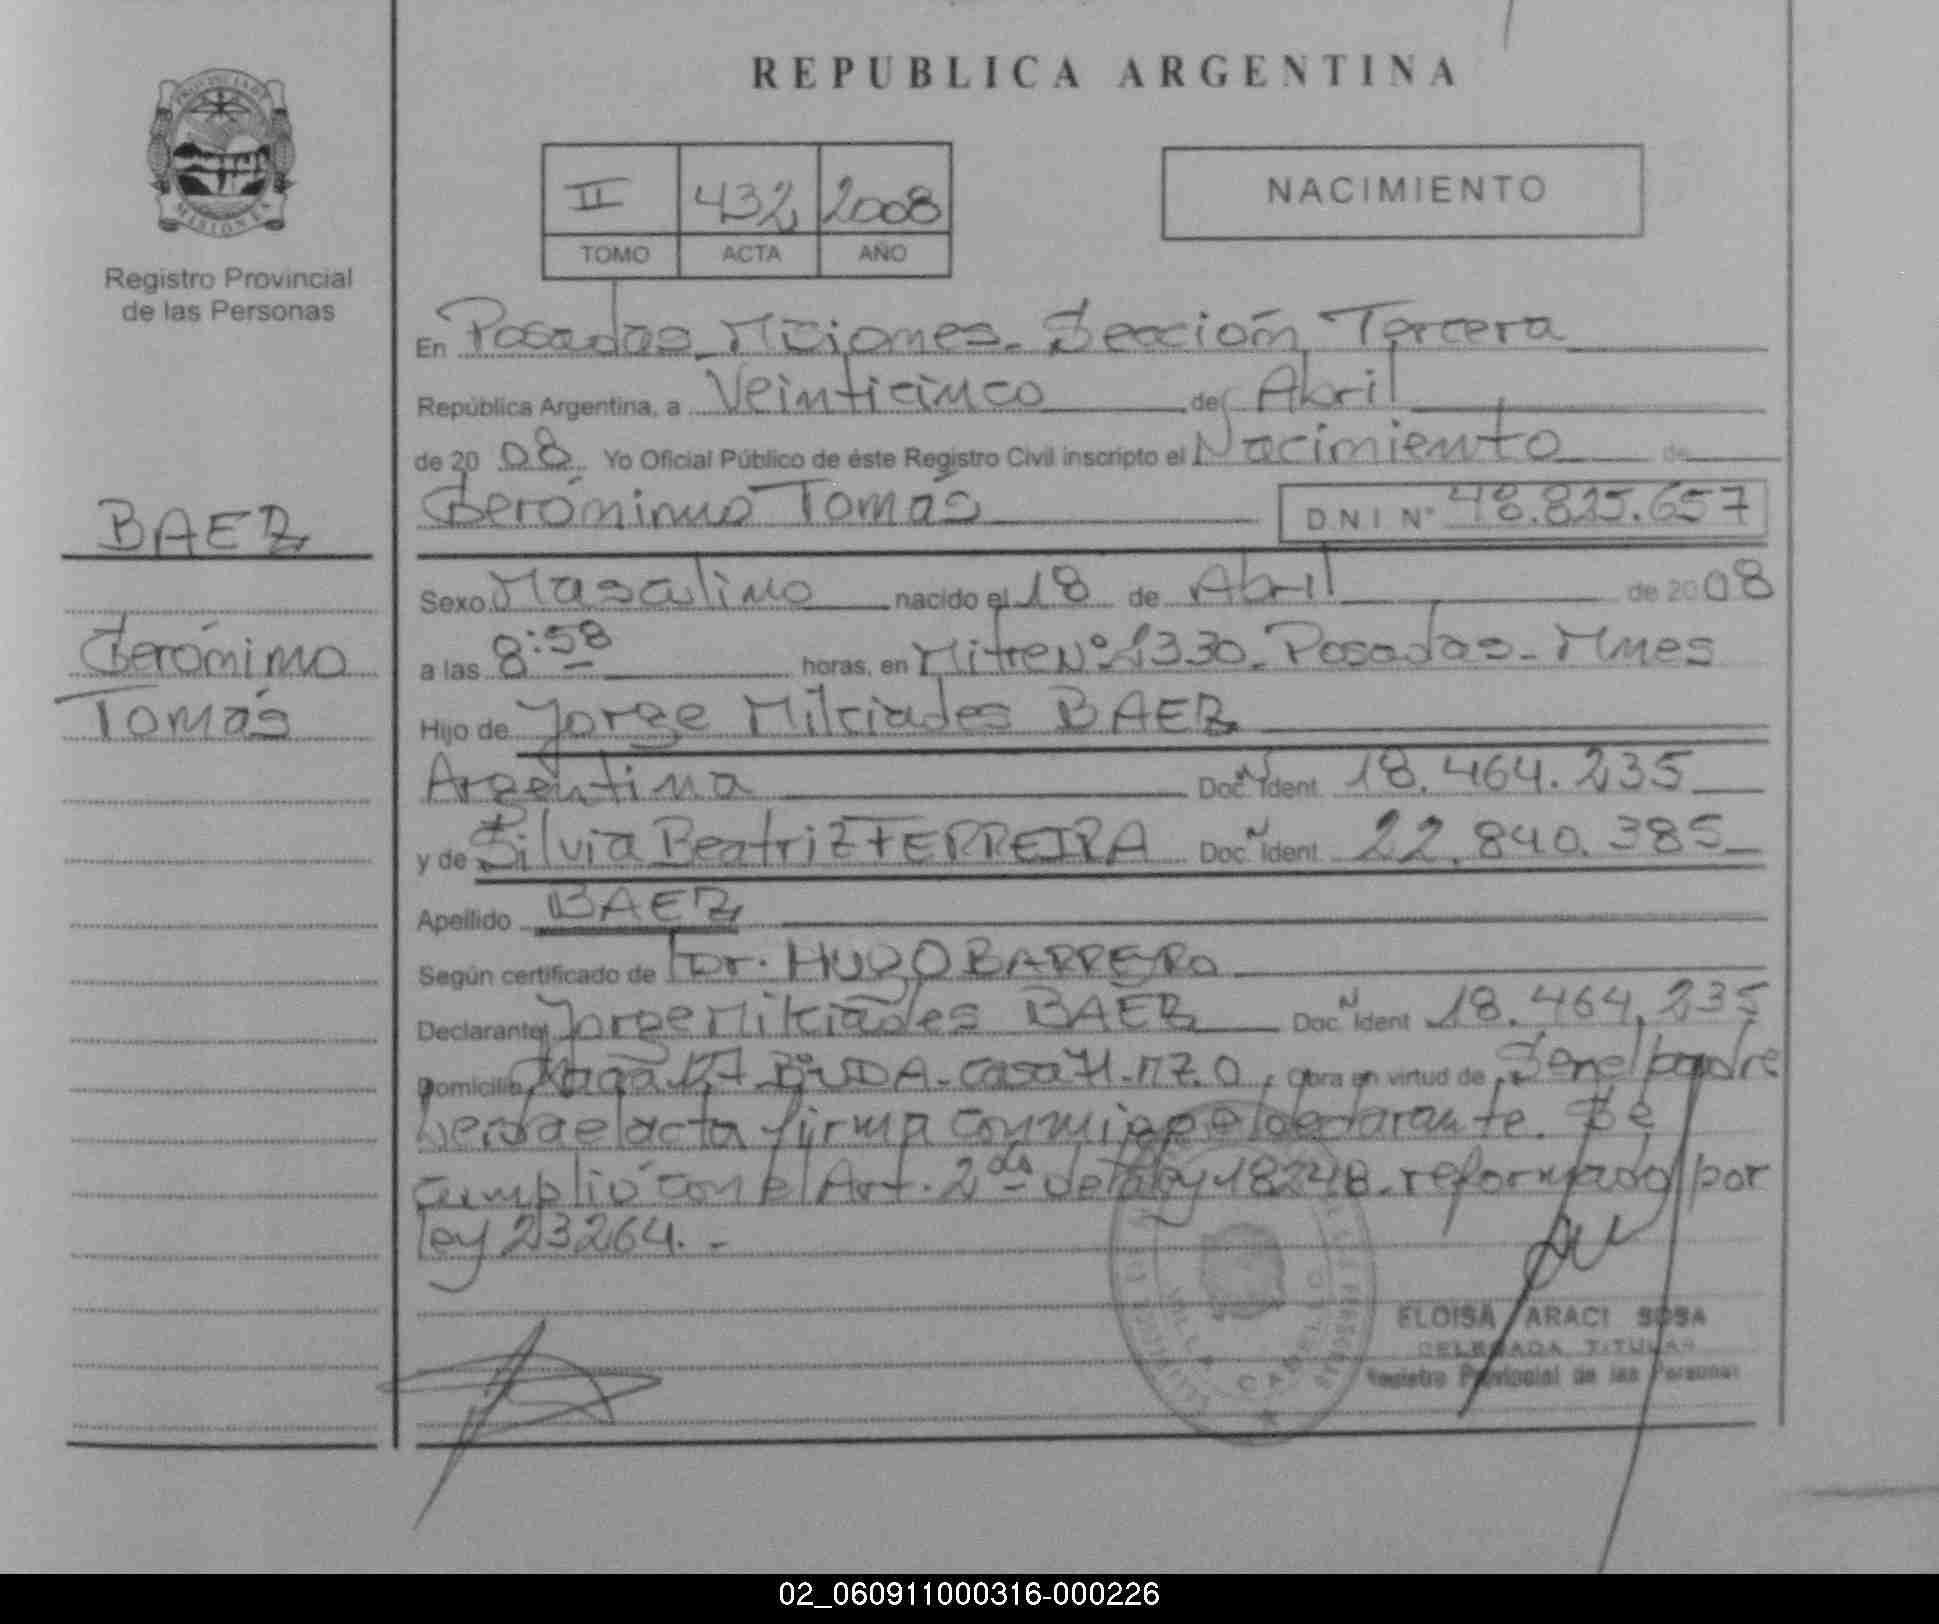 REPUBLICA ARGENTINA
PROVINCIA DE
MISIONES
Registro Provincial
de las Personas
II 432 2008
TOMO ACTA AÑO
NACIMIENTO
En Posadas Misiones. Sección Tercera
República Argentina, a Veinticinco de Abril
de 2008 Yo Oficial Público de éste Registro Civil inscripto el Nacimiento de
Gerónimo Tomás DNI Nº 48.825.657
BAEZ
Gerónimo
Tomás
Sexo Masculino nacido el 18 de Abril de 2008
a las 8:58 horas, en Mitre Nº 2330. Posadas - Mnes
Hijo de Jorge Milciades BAEZ
Argentina Doc. Ident. 18.464.235
y de Silvia Beatriz FERREIRA Doc. Ident. 22.840.385
Apellido BAEZ
Según certificado de Dr. HUGO BARRERO
Declarante Jorge Milciades BAEZ Doc. Ident 18.464.235
Domicilio Casa 71. MZ. O, Obra en virtud de Ser el padre
Leida el acta firma conmigo el declarante. Se
cumplió con el Art. 2do de la ley 18248. reformado por
ley 23264. -
VILLA CABELLO
ELOISA ARACI SOSA
DELEGADA TITULAR
Registro Provincial de las Personas
02_060911000316-000226